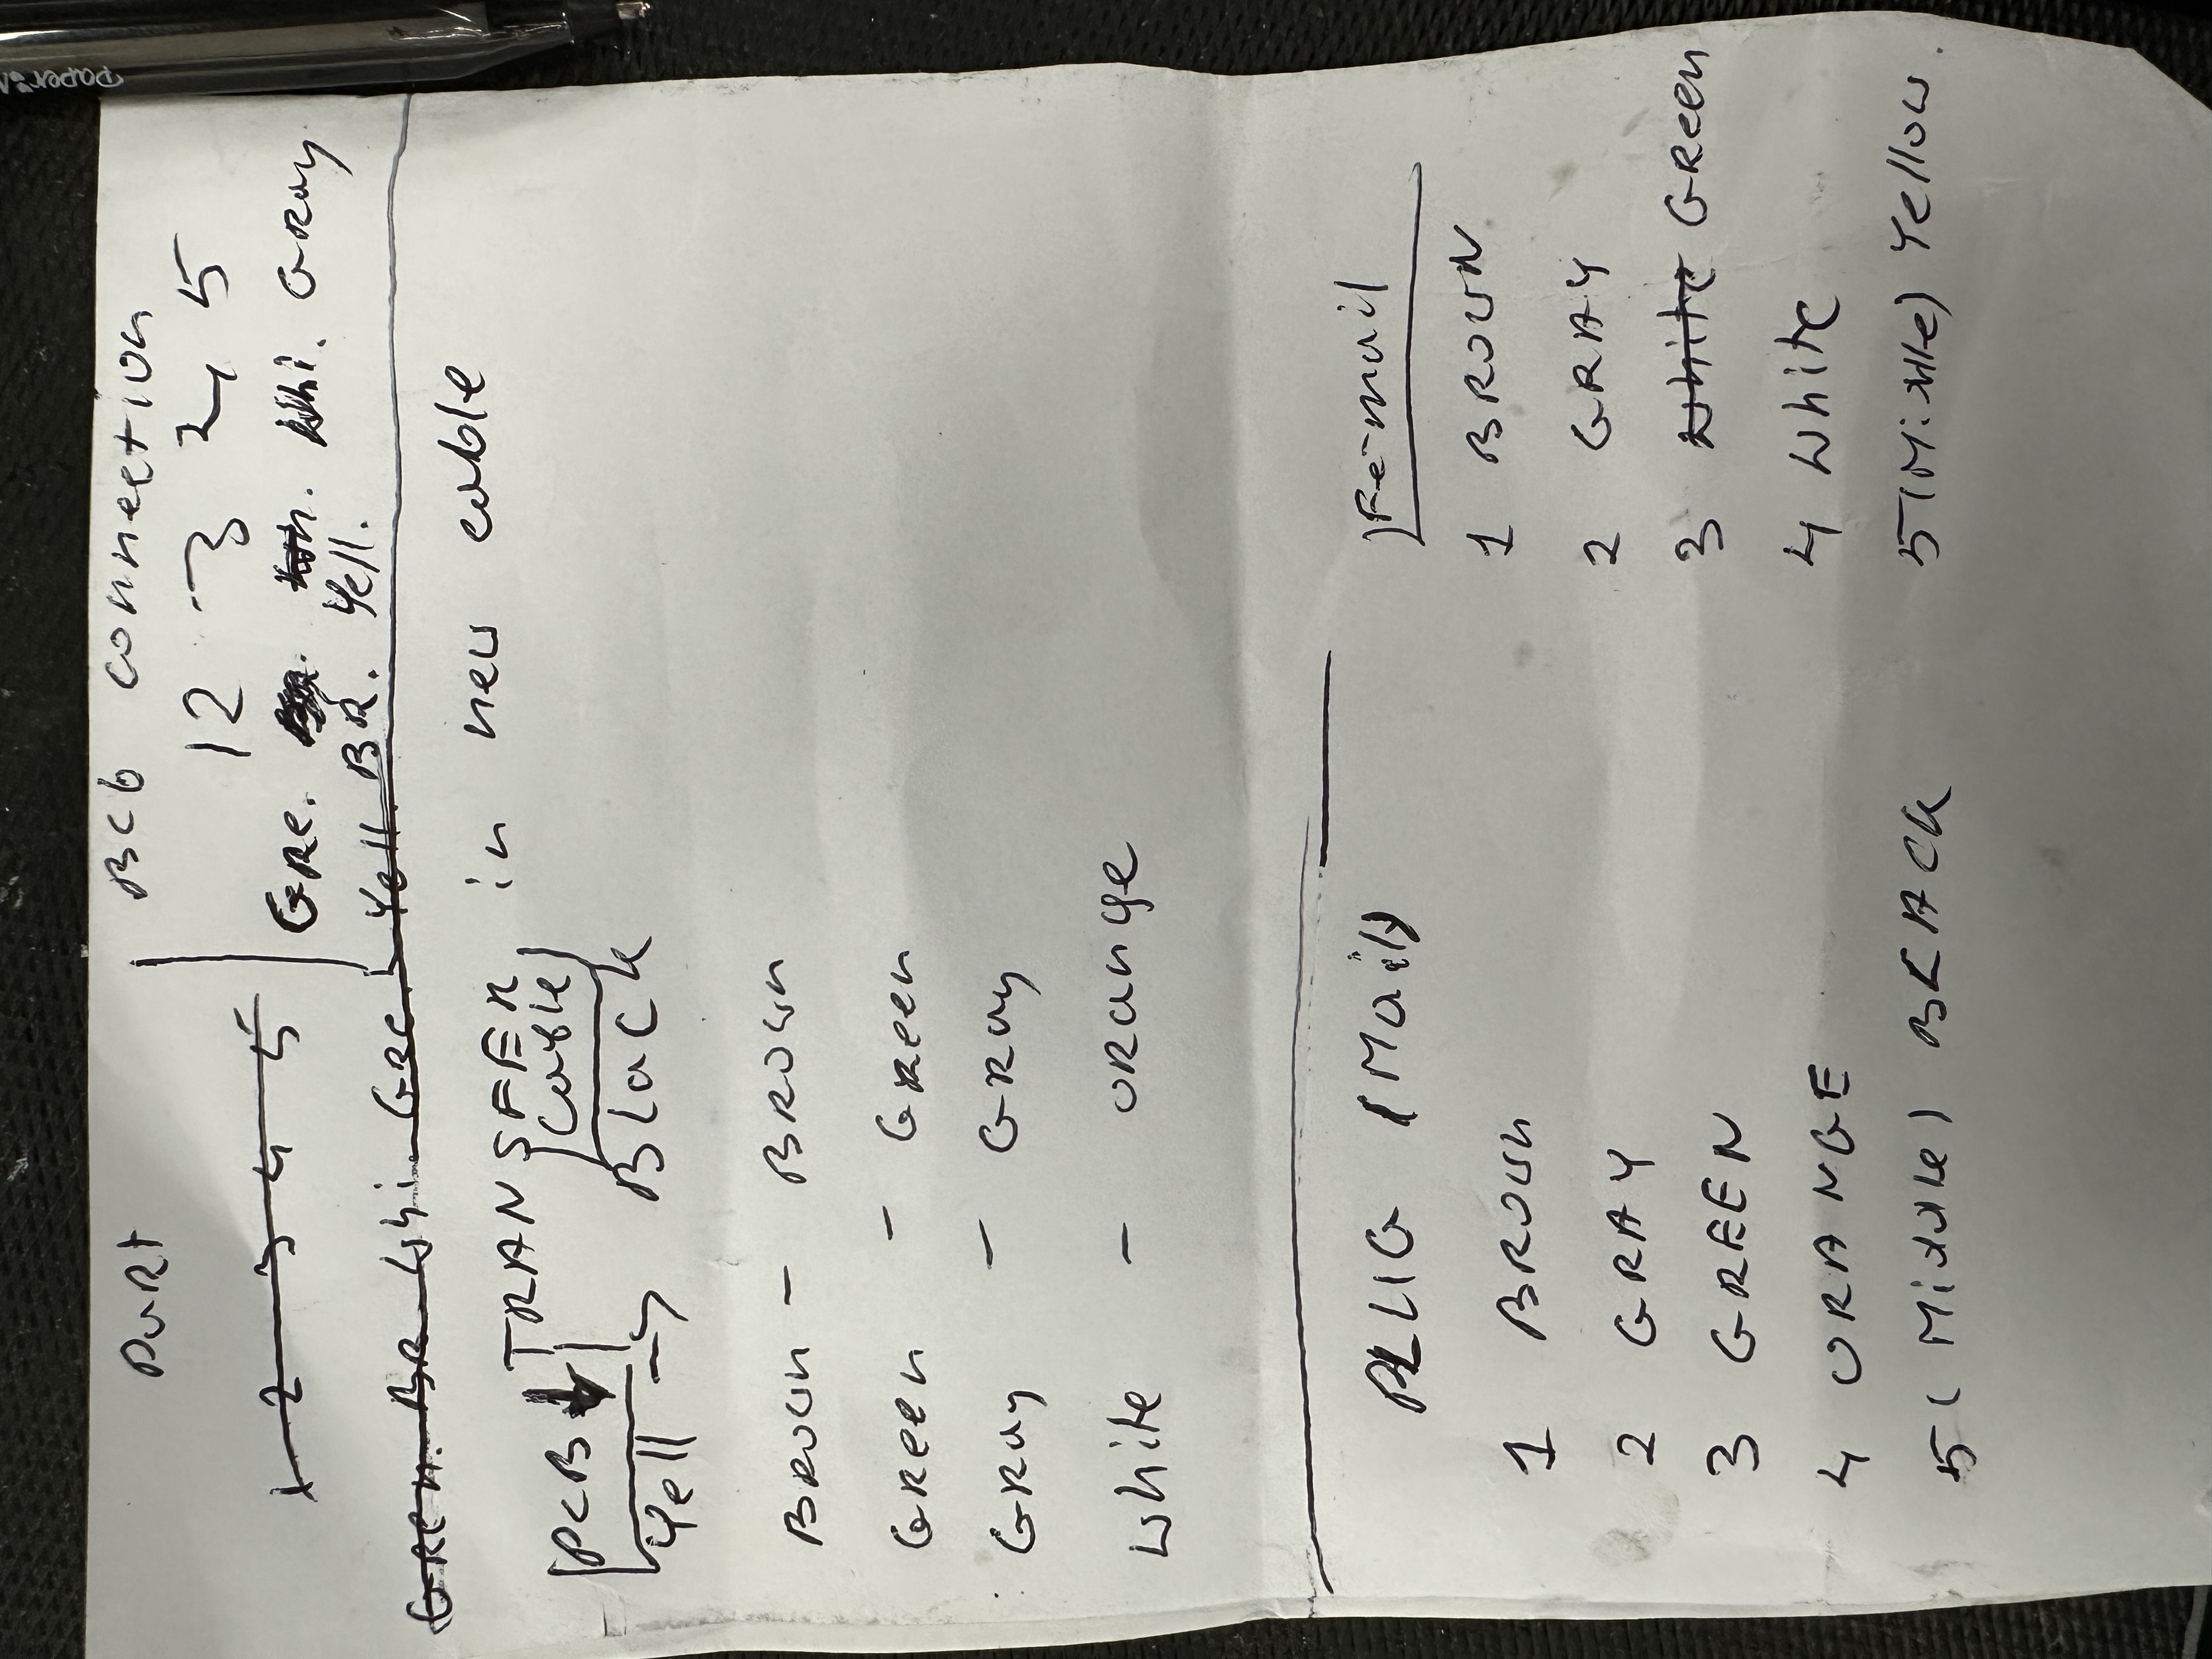 PORT BCB connection
1 2 3 4 5 1 2 3 4 5
GREN. BR Whi GRE Yell
GRE. Whi. GRAY
BR. Yell.
TRANSFER in new cable
PCB Cable
Yell -> Black
Brown - Brown
Green - Green
Gray - Gray
White - Orange
PLUG (Mail)
1 Brown
2 GRAY
3 GREEN
4 ORANGE
5 (Middle) BLACK
Fe-mail
1 BROWN
2 GRAY
3 White Green
4 White
5 (Middle) Yellow.
paper